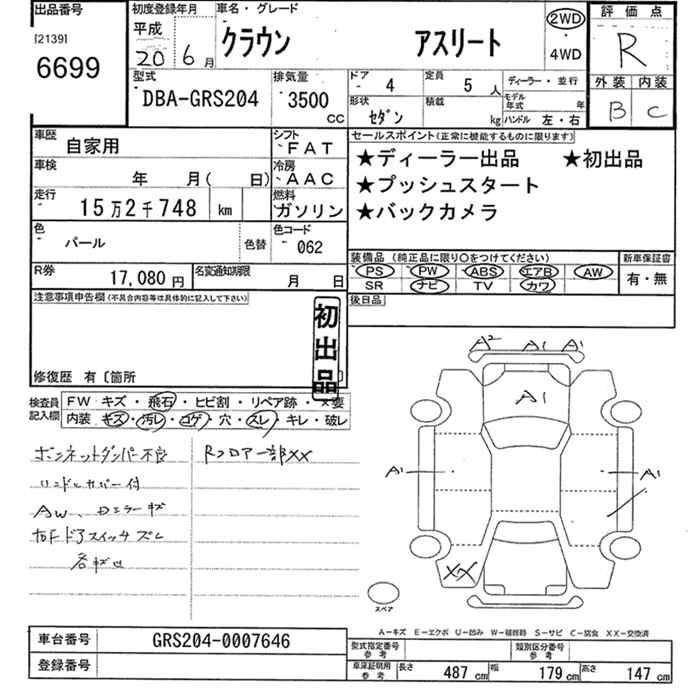 出品番号
[2139]
6699
初度登録年月
平成
20 6 月
車名・グレード
クラウン アスリート
2WD
4WD
評価点
R
外装 内装
B C
型式
DBA-GRS204
排気量
3500
CC
ドア
4
定員
5 人
形状
セダン
積載
kg
ディーラー・並行
モデル年式 年
ハンドル 左・右
車歴
自家用
シフト
FAT
車検
年 月( 日)
冷房
AAC
走行
15万2千748 km
燃料
ガソリン
色
パール
色替
色コード
062
R券
17,080 円
名変通知期限
月 日
セールスポイント(正常に機能するものに限ります)
★ディーラー出品 ★初出品
★プッシュスタート
★バックカメラ
装備品 (純正品に限り〇をつけてください)
新車保証書
PS PW ABS エアB AW
有・無
SR ナビ TV カワ
後日品
注意事項申告欄(不具合内容等は具体的に記入して下さい)
初出品
修復歴 有〔箇所
検査員記入欄
FW キズ・飛石・ヒビ割・リペア跡・×要
内装 キズ・汚レ・コゲ・穴・スレ・キレ・破レ
ボンネットダンパー不良
Rフロアー部XX
ハンドルカバー付
AW、ドアミラーキズ
右Fドアスイッチズレ
各キズ凹
A2 A1 A1
A1
A1
A1
XX
スペア
A-キズ E-エクボ U-凹み W-補修跡 S-サビ C-腐食 XX-交換済
車台番号
GRS204-0007646
登録番号
型式指定番号
参考
類別区分番号
参考
車庫証明用
参考
長さ 487 cm 幅 179 cm 高さ 147 cm